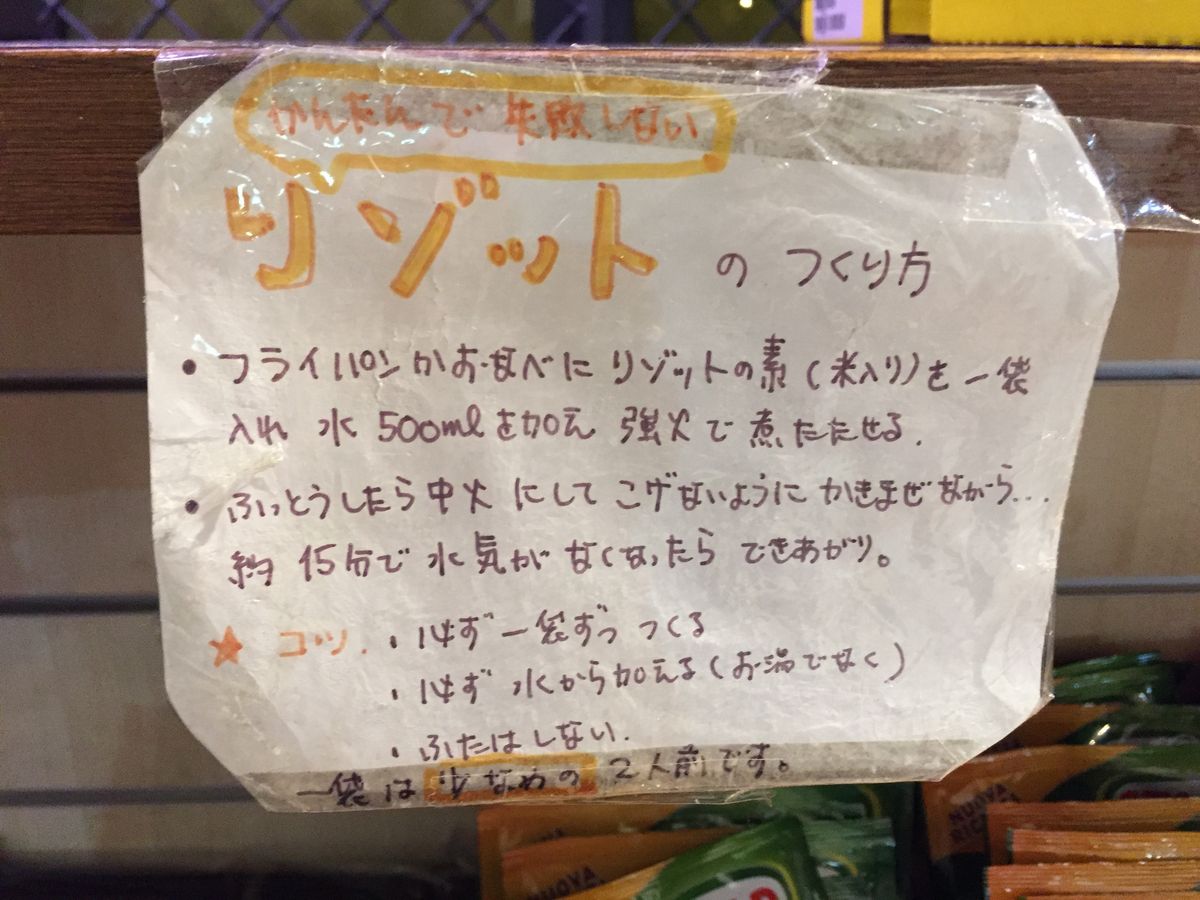 かんたんで失敗しない
リゾットのつくり方
・フライパンかおなべにリゾットの素(米入り)を一袋
入れ 水 500mlを加え 強火で煮たたせる.
・ふっとうしたら中火にしてこげないようにかきまぜながら...
約15分で水気がなくなったらできあがり。
★コツ.・必ず一袋ずつつくる
・必ず水から加える(お湯でなく)
・ふたはしない.
一袋は少なめの2人前です。
NUOVA
NUOVA